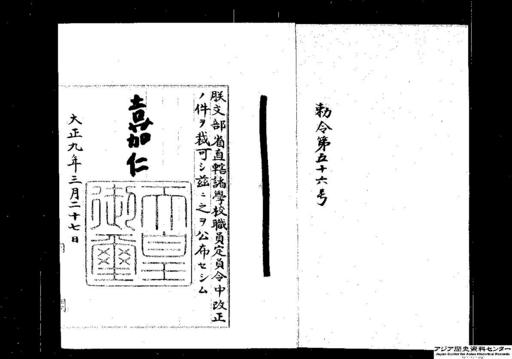 勅令第五十六号
朕文部省直轄諸學校職員定員令中改正
ノ件ヲ裁可シ茲ニ之ヲ公布セシム
嘉仁
天皇
御璽
大正九年三月二十七日
アジア歴史資料センター
Japan Center for Asian Historical Records